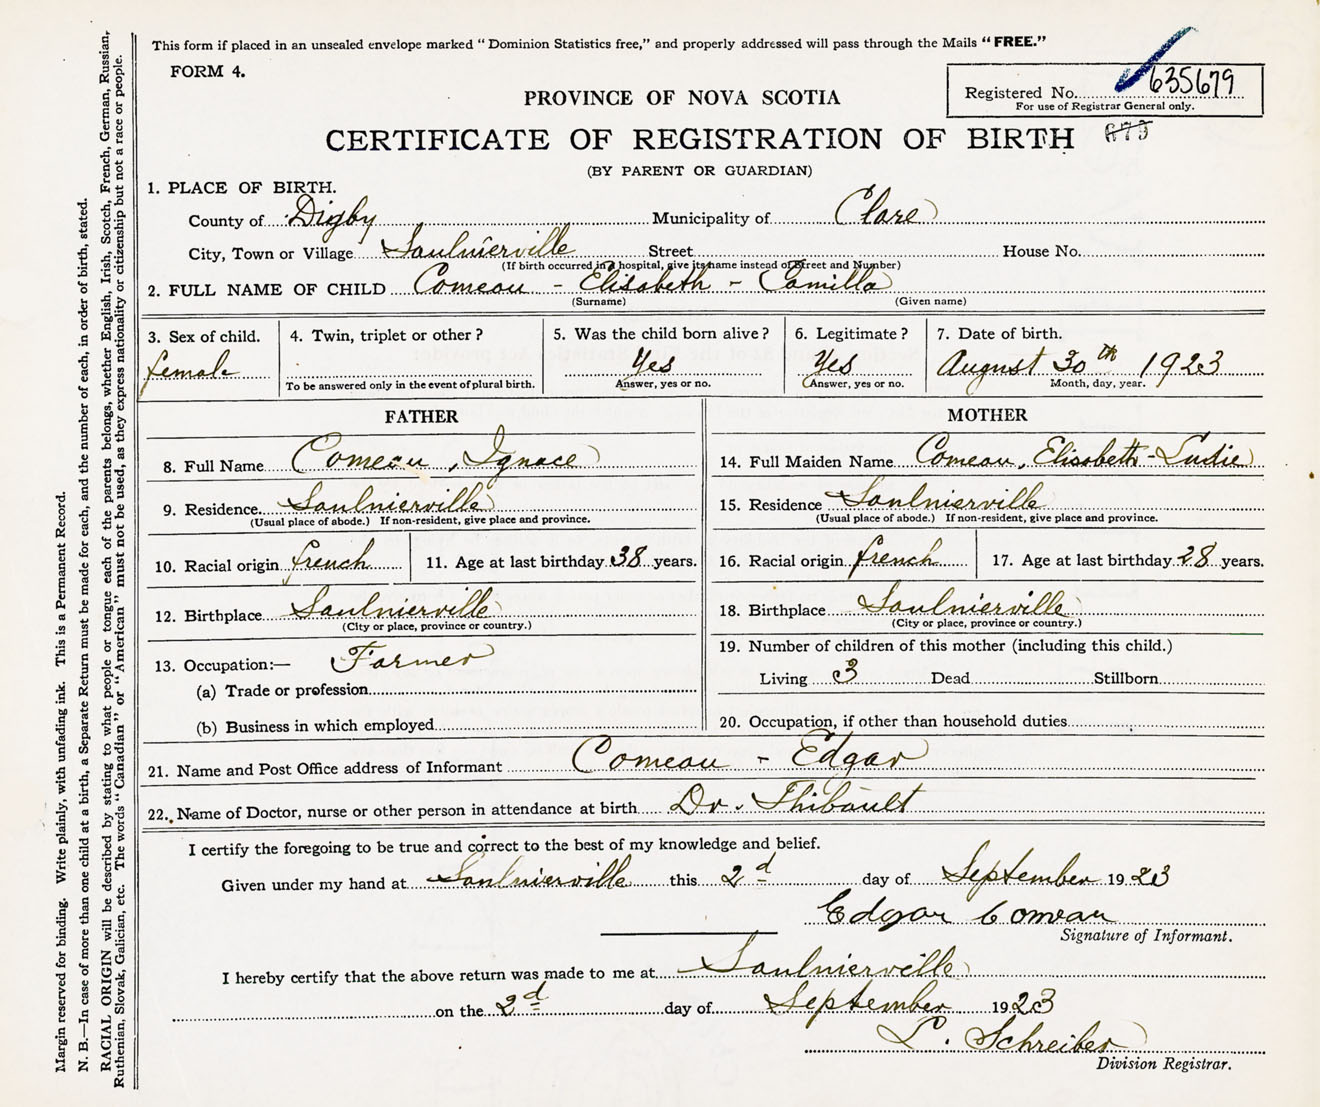 This form if placed in an unsealed envelope marked “Dominion Statistics free,” and properly addressed will pass through the Mails “FREE.”
FORM 4.
Registered No. 635679
For use of Registrar General only.
PROVINCE OF NOVA SCOTIA
CERTIFICATE OF REGISTRATION OF BIRTH 679
(BY PARENT OR GUARDIAN)
1. PLACE OF BIRTH.
County of Digby Municipality of Clare
City, Town or Village Saulnierville Street House No.
(If birth occurred in a hospital, give its name instead of Street and Number)
2. FULL NAME OF CHILD Comeau - Elisabeth - Camilla
(Surname) (Given name)
3. Sex of child. 4. Twin, triplet or other? 5. Was the child born alive? 6. Legitimate? 7. Date of birth.
female Yes Yes August 30th 1923
To be answered only in the event of plural birth. Answer, yes or no. Answer, yes or no. Month, day, year.
FATHER MOTHER
8. Full Name Comeau, Ignace 14. Full Maiden Name Comeau, Elisabeth - Ludie
9. Residence Saulnierville 15. Residence Saulnierville
(Usual place of abode.) If non-resident, give place and province. (Usual place of abode.) If non-resident, give place and province.
10. Racial origin french 11. Age at last birthday 38 years. 16. Racial origin french 17. Age at last birthday 28 years.
12. Birthplace Saulnierville 18. Birthplace Saulnierville
(City or place, province or country.) (City or place, province or country.)
13. Occupation:— Farmer 19. Number of children of this mother (including this child.)
(a) Trade or profession Living 3 Dead Stillborn
(b) Business in which employed 20. Occupation, if other than household duties
21. Name and Post Office address of Informant Comeau - Edgar
22. Name of Doctor, nurse or other person in attendance at birth Dr. Thibault
I certify the foregoing to be true and correct to the best of my knowledge and belief.
Given under my hand at Saulnierville this 2d day of September 1923
Edgar Comeau
Signature of Informant.
I hereby certify that the above return was made to me at Saulnierville
on the 2d day of September 1923
L. Schreiber
Division Registrar.
Margin reserved for binding. Write plainly, with unfading ink. This is a Permanent Record.
N. B.—In case of more than one child at a birth, a Separate Return must be made for each, and the number of each, in order of birth, stated.
RACIAL ORIGIN will be described by stating to what people or tongue each of the parents belongs, whether English, Irish, Scotch, French, German, Russian,
Ruthenian, Slovak, Galician, etc. The words “Canadian” or “American” must not be used, as they express nationality or citizenship but not a race or people.